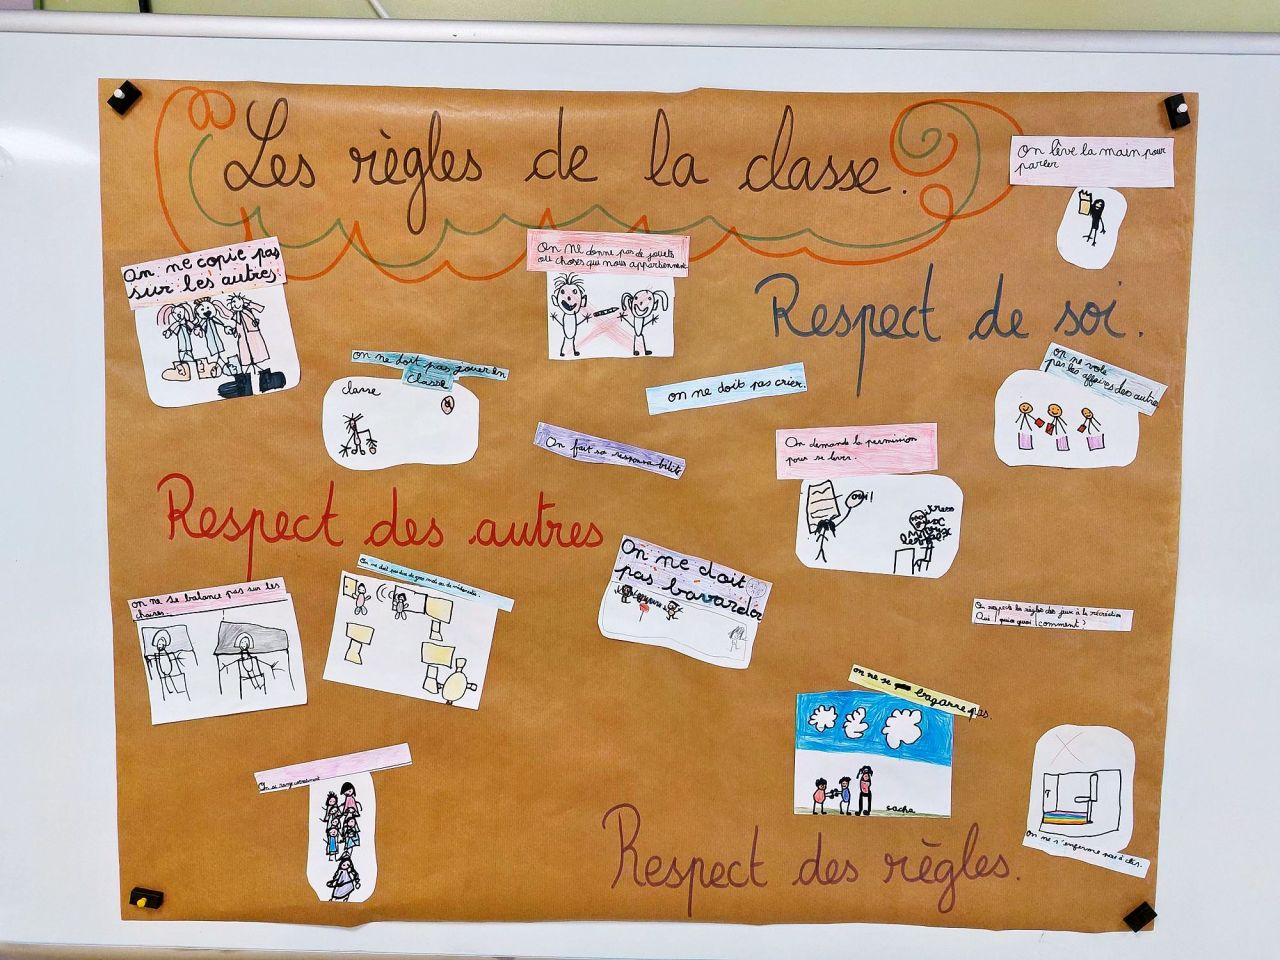 Les règles de la classe.
On lève la main pour
parler
On ne copie pas
sur les autres
On ne donne pas de jouets
ou choses qui nous appartiennent
Respect de soi.
On ne doit pas jouer en
classe
classe
on ne doit pas crier.
on ne vole
pas les affaires des autres
On fait sa responsabilité
On demande la permission
pour se lever.
oui!
Respect des autres
On ne doit
pas bavarder
on ne se balance pas sur les
chaises
On ne doit pas dire de gros mots ou de
On respecte les règles des jeux à la récréation
Qui ? quoi ? comment ?
on ne se bagarre pas.
cache
On se range correctement
On ne s'enferme pas à clés.
Respect des règles.